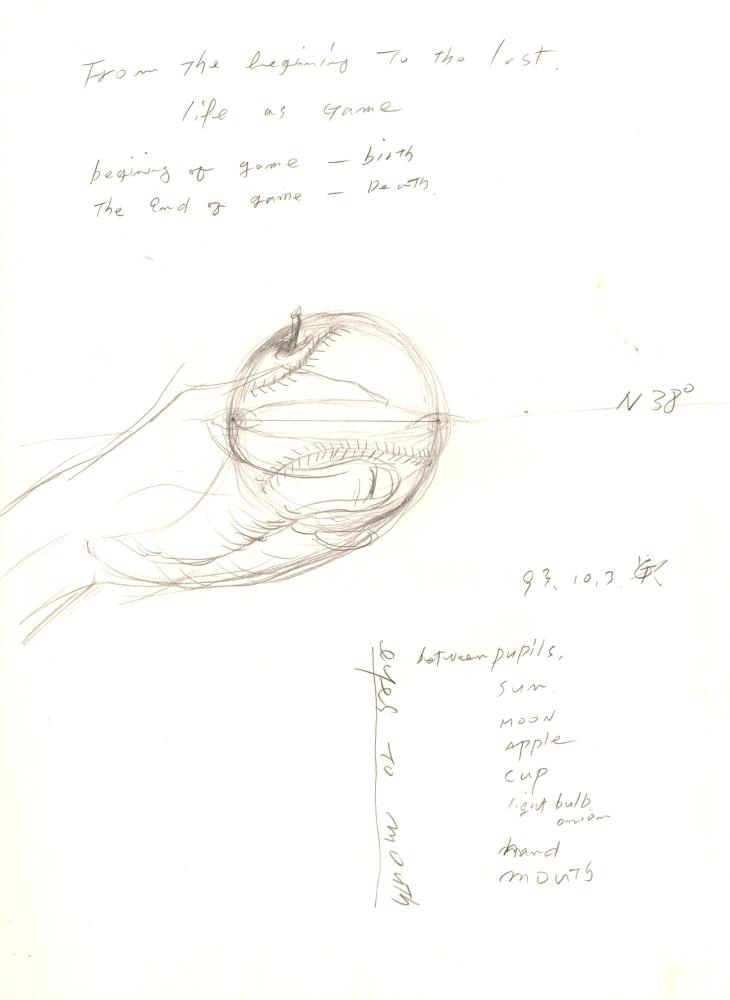 From the beginning To the last.
life as Game
begining of game — birth
The End of game — Death.
N 38°
93. 10. 3.
between pupils,
sun.
MOON
Apple
cup
light bulb
onion
hand
mouth
eyes to mouth